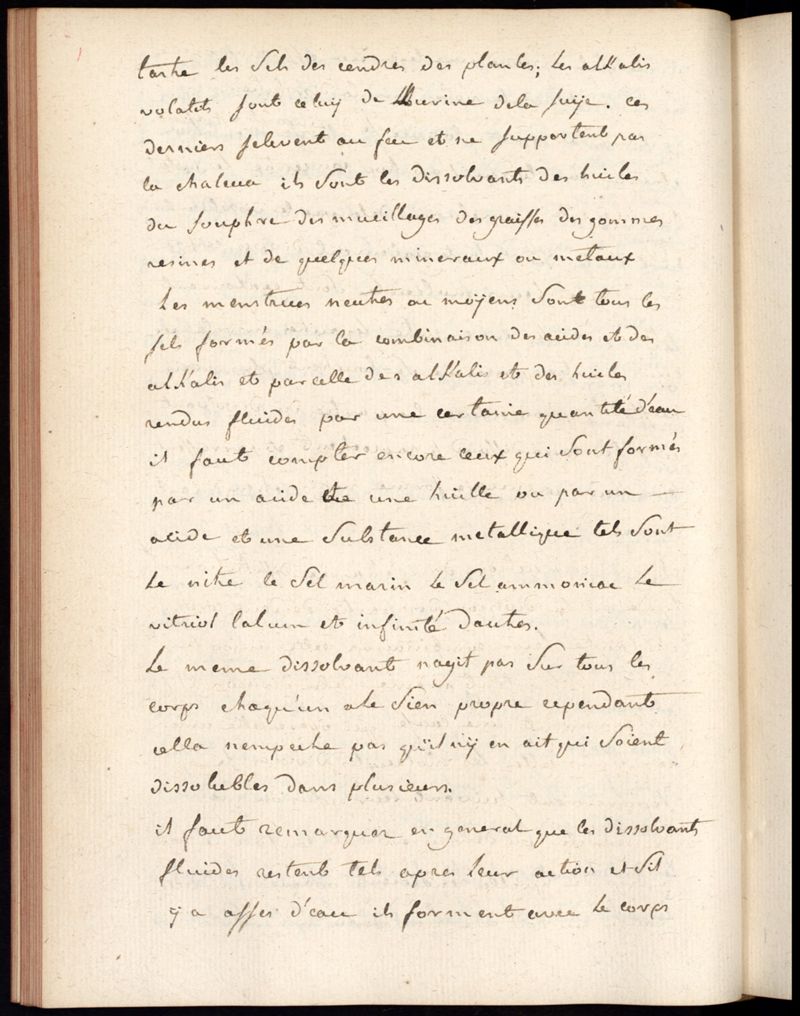 tartre les sels des cendres des plantes; les alkalis
volatils sont celuy de l'urine de la suije. ces
derniers selevent au feu et ne supportent pas
la chaleur ils sont les dissolvants des huiles
du souphre des mucillages des graisses des gommes
resines et de quelques mineraux ou metaux
les menstrues neutres ou moÿens sont tous les
sels formés par la combinaison des acides et des
alkalis et par celle des alkalis et des huiles
rendus fluides par une certaine quantité d'eau
il faut compter encore ceux qui sont formés
par un acide et une huille ou par un
acide et une substance metallique tels sont
le nitre le sel marin le sel ammoniac le
vitriol lalum et infinité dautres.
Le meme dissolvant nagit pas sur tous les
corps chaqu'un a le sien propre cependant
cella nempeche pas qu'il nÿ en ait qui soient
dissolubles dans plusieurs.
il faut remarquer en general que les dissolvants
fluides restent tels apres leur action et sil
ÿ a asses d'eau ils forment avec le corps